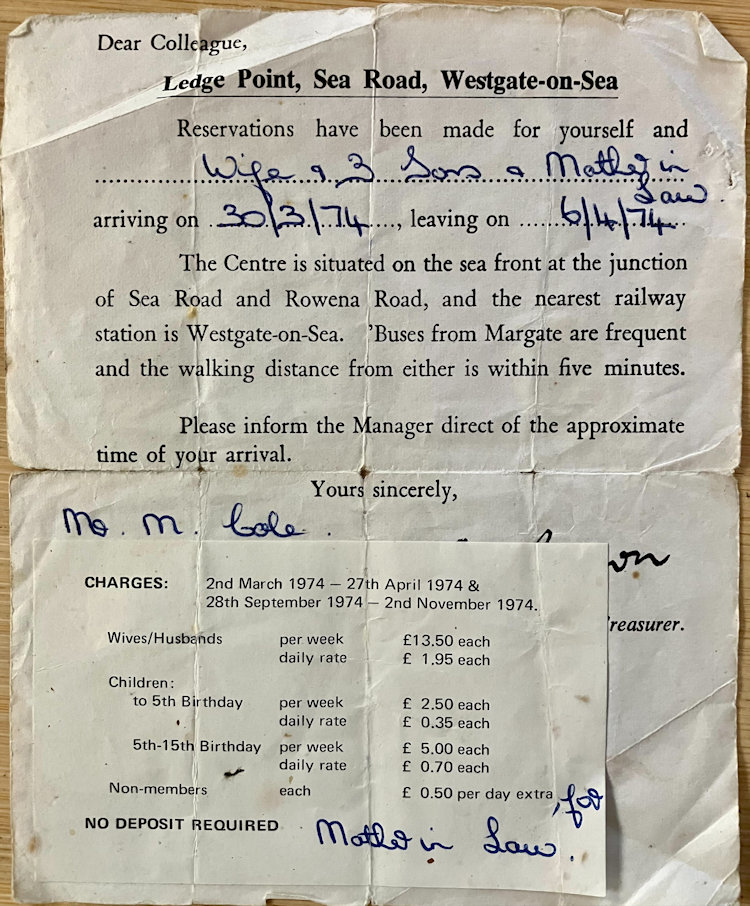 Dear Colleague,
Ledge Point, Sea Road, Westgate-on-Sea
Reservations have been made for yourself and
Wife & 3 Sons & Mother in
Law.
arriving on 30/3/74, leaving on 6/4/74
The Centre is situated on the sea front at the junction
of Sea Road and Rowena Road, and the nearest railway
station is Westgate-on-Sea. 'Buses from Margate are frequent
and the walking distance from either is within five minutes.
Please inform the Manager direct of the approximate
time of your arrival.
Yours sincerely,
Mr. M. Cole.
reasurer.
CHARGES: 2nd March 1974 – 27th April 1974 &
28th September 1974 – 2nd November 1974.
Wives/Husbands per week £13.50 each
daily rate £ 1.95 each
Children:
to 5th Birthday per week £ 2.50 each
daily rate £ 0.35 each
5th-15th Birthday per week £ 5.00 each
daily rate £ 0.70 each
Non-members each £ 0.50 per day extra, for
NO DEPOSIT REQUIRED Mother in Law.